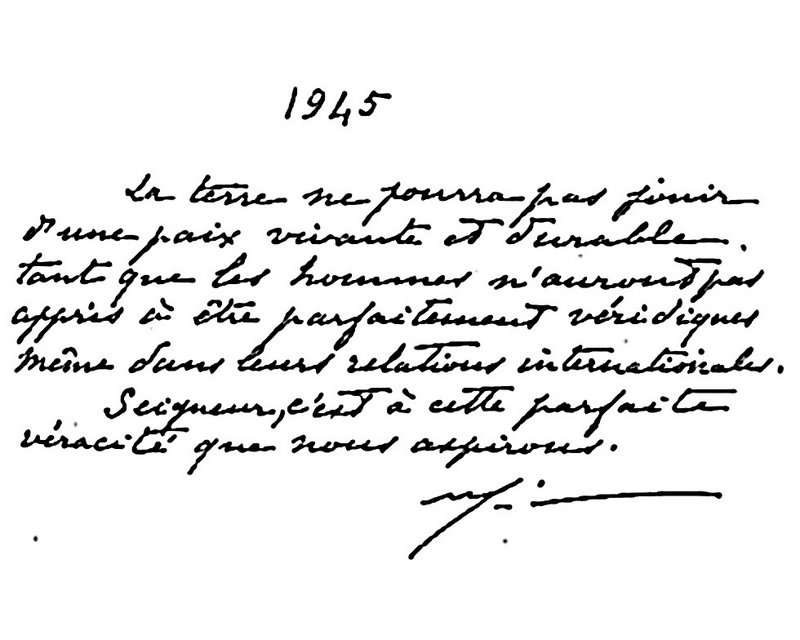 1945
La terre ne pourra pas jouir
d'une paix vivante et durable.
tant que les hommes n'auront pas
appris à être parfaitement véridiques
même dans leurs relations internationales.
Seigneur, c'est à cette parfaite
véracité que nous aspirons.